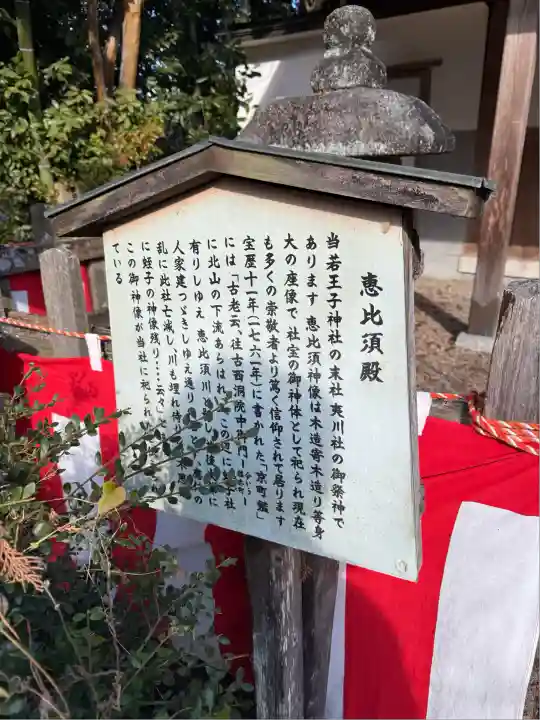 恵比須殿
当若王子神社の末社 夷川社の御祭神で
あります 恵比須神像は木造寄木造り等身
大の座像で 社宝の御神体として祀られ現在
も多くの崇敬者より篤く信仰されて居ります
宝歴十一年(一七六一年)に書かれた「京町鑑」
には「古老云、往古西洞院中御門
に北山の下流あらはれ この辺に 子社
有りしゆえ 恵比須川と
人家建つゞきしゆえ通り
乱に此社亡滅し川も埋れ侍り
に蛭子の神像残り・・・云々」と
この御神像が当社に祀られ
ている